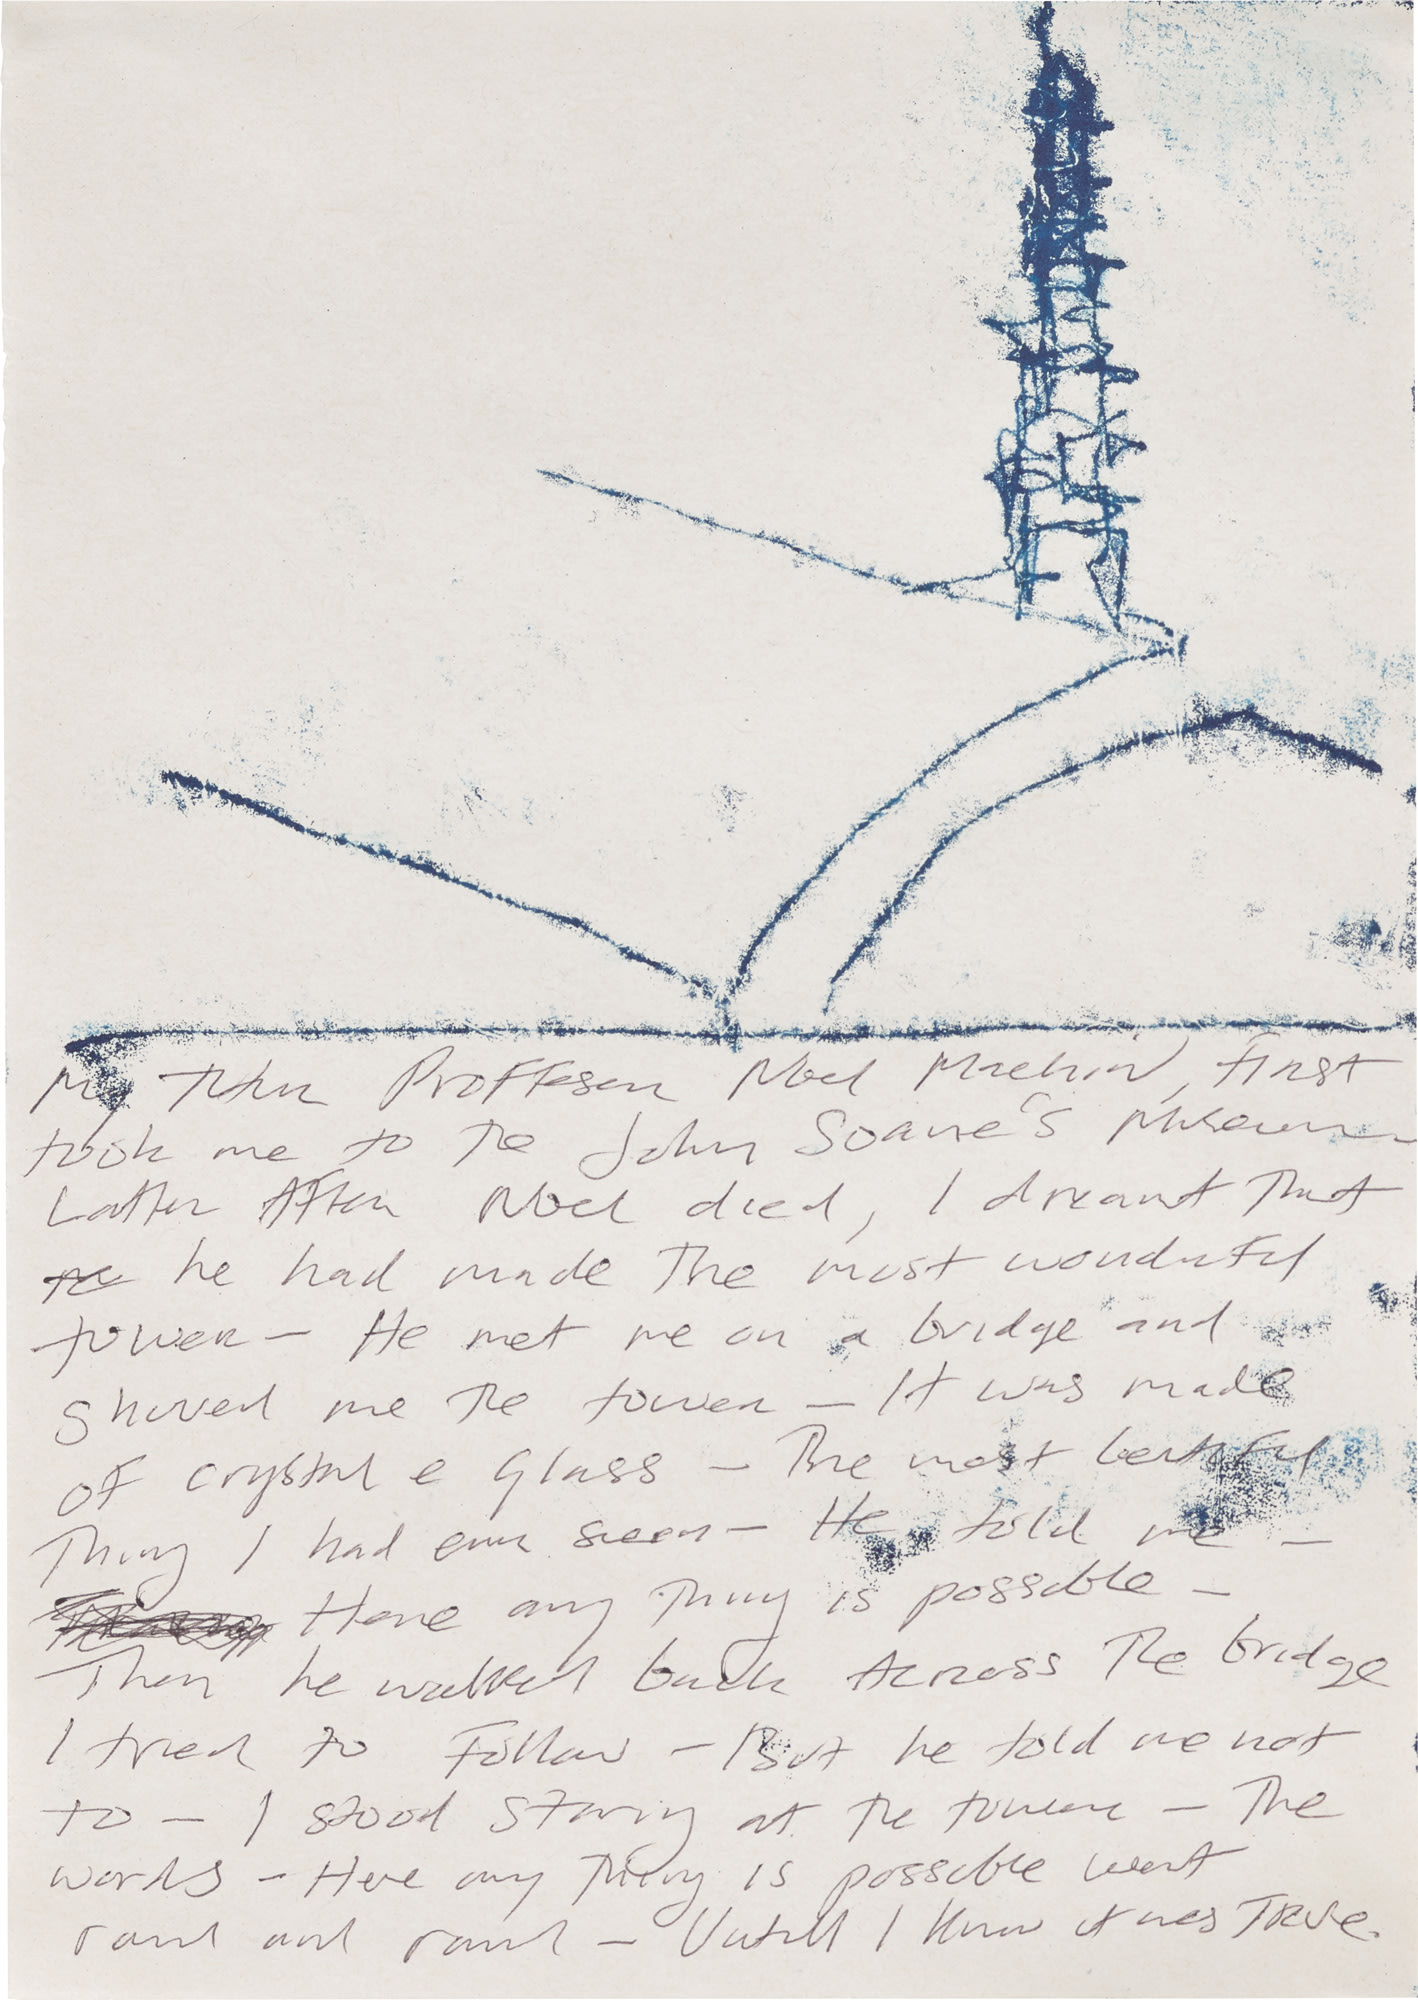 My Tutor Proffeser Noel Machin, first
took me to the John Soane's Museum
Latter After Noel died, I dreamt That
he had made The most wonderful
tower – He met me on a bridge and
showed me the tower – It was made
of crystal e Glass – The most beatiful
Thing I had ever seen – He told me –
Here any Thing is possible –
Then he walked back Across The bridge
I tried to Follow – But he told me not
to – I stood staring at the tower – The
words – Here any Thing is possible went
round and round – Untill I Know it was TRUE.